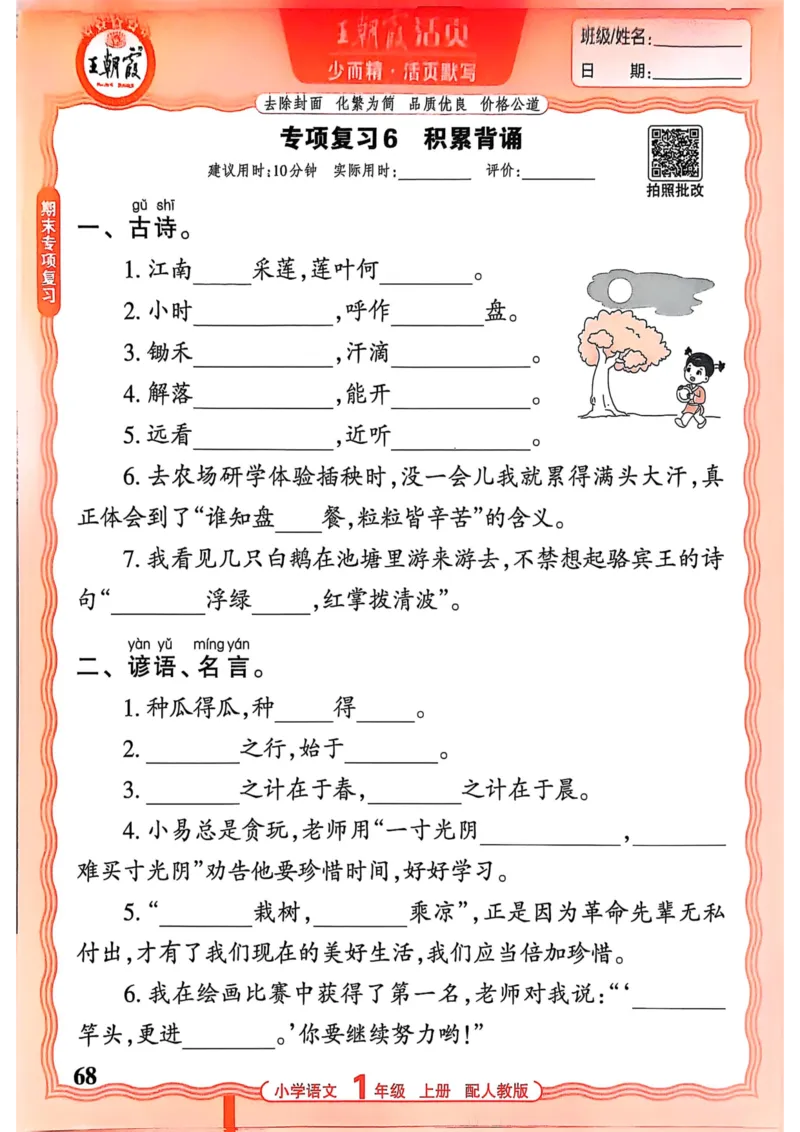 王朝霞
王朝霞活页
少而精·活页默写
班级/姓名:__________
日 期:__________
去除封面 化繁为简 品质优良 价格公道
专项复习6 积累背诵
建议用时:10分钟 实际用时:________ 评价:________
拍照批改
期末专项复习
gǔ shī
一、古诗。
1. 江南_____采莲,莲叶何________。
2. 小时____________,呼作________盘。
3. 锄禾____________,汗滴____________。
4. 解落____________,能开____________。
5. 远看____________,近听____________。
6. 去农场研学体验插秧时,没一会儿我就累得满头大汗,真
正体会到了“谁知盘____餐,粒粒皆辛苦”的含义。
7. 我看见几只白鹅在池塘里游来游去,不禁想起骆宾王的诗
句“________浮绿_____,红掌拨清波”。
yàn yǔ míng yán
二、谚语、名言。
1. 种瓜得瓜,种_____得_____。
2. ________之行,始于________。
3. ________之计在于春,________之计在于晨。
4. 小易总是贪玩,老师用“一寸光阴____________,________
难买寸光阴”劝告他要珍惜时间,好好学习。
5. “________栽树,________乘凉”,正是因为革命先辈无私
付出,才有了我们现在的美好生活,我们应当倍加珍惜。
6. 我在绘画比赛中获得了第一名,老师对我说:“‘________
竿头,更进________。’你要继续努力哟!”
68
小学语文 1年级 上册 配人教版